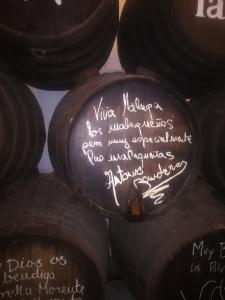 la
Viva Málaga
los malagueños
pero muy especialmente
las malagueñas
Antonio Banderas
Dios os
Bendiga
Estrella Morente
Muy B
los Pol